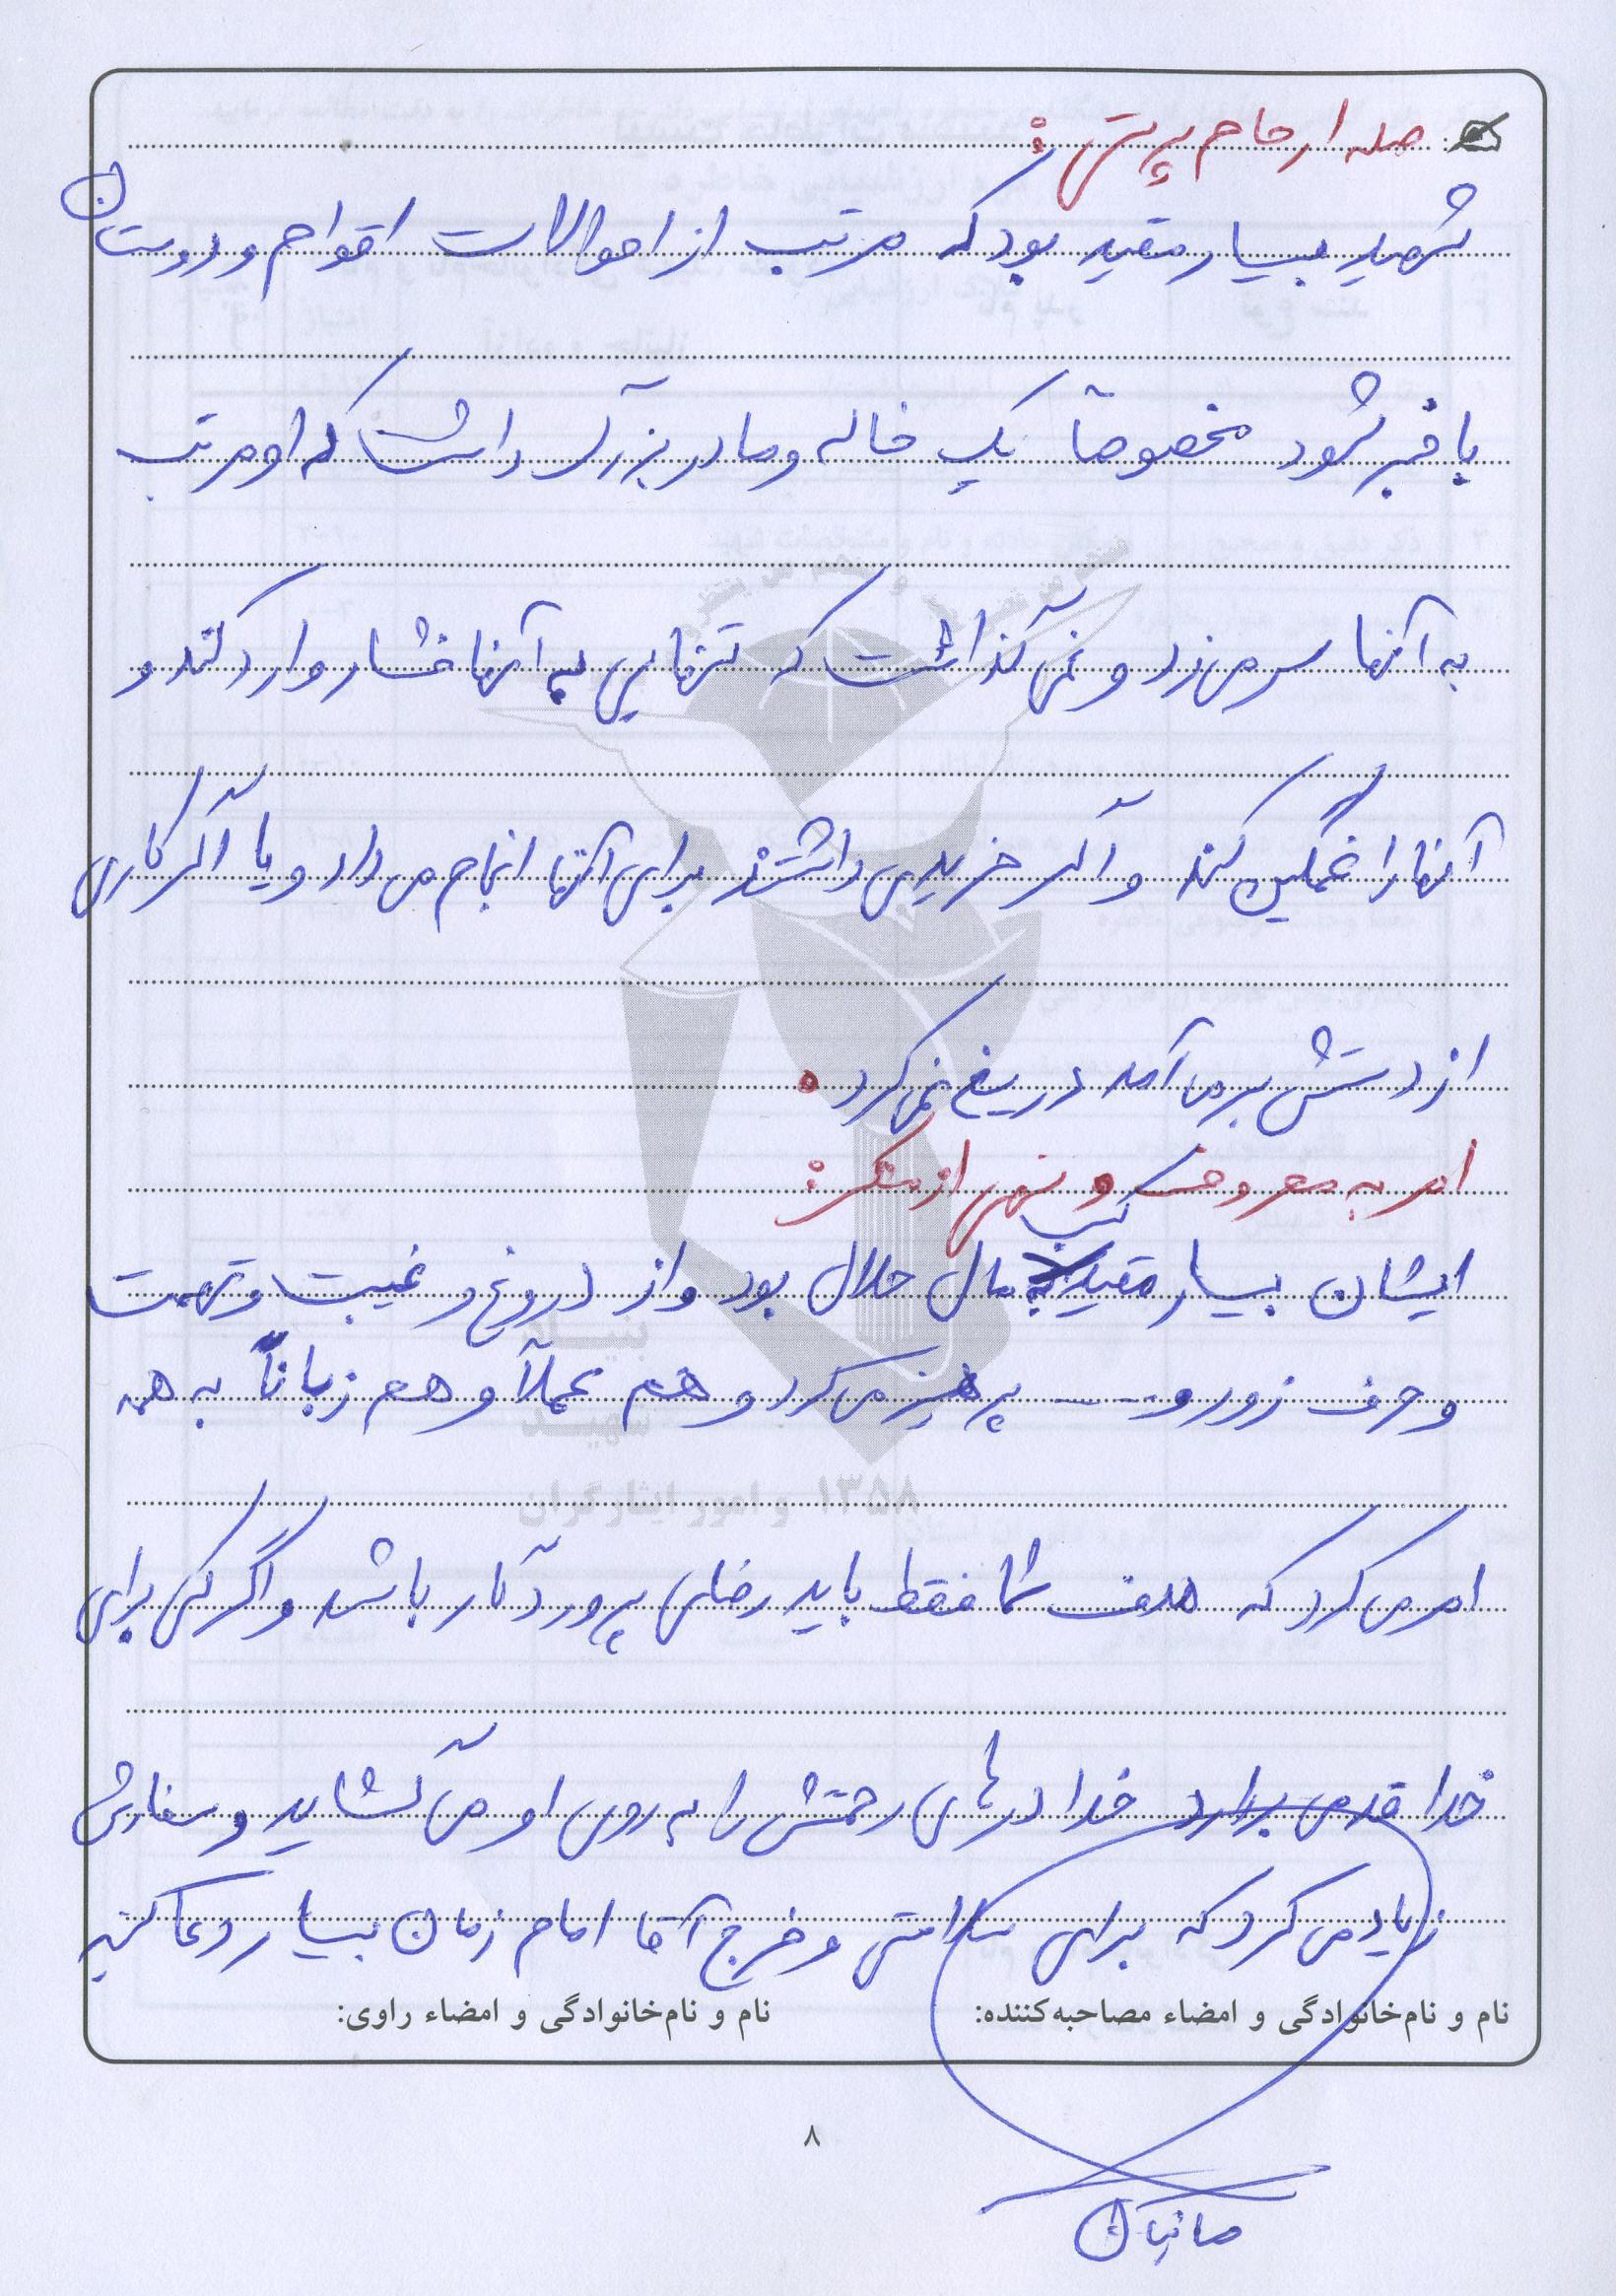 صله ارحام پرستی:
شهید بسیار مقید بود که مرتب از احوالات اقوام و دوستان
با خبر شود مخصوصاً یک خاله و مادر بزرگ داشت که او مرتب
به آنها سر می زد و نمی گذاشت که تنهایی به آنها فشار وارد کند و
آنها را غمگین کند و اگر خریدی داشتند برای آنها انجام می داد و یا اگر کاری
از دستش بر می آمد دریغ نمی کرد.
امر به معروف و نهی از منکر:
ایشان بسیار مقید کسب مال حلال بود و از دروغ و غیبت و تهمت
و حرف زور و ... پرهیز می کرد و هم عملاً و هم زباناً به همه
امر می کرد که هدف شما فقط باید رضای پروردگار باشد و اگر کسی برای
خدا قدمی بردارد خدا درهای رحمتش را به روی او می گشاید و سفارش
زیاد می کرد که برای سلامتی و فرج آقا امام زمان بسیار دعا کنید
نام و نام‌خانوادگی و امضاء مصاحبه‌کننده: نام و نام‌خانوادگی و امضاء راوی:
۸
بنیاد
شهید
و امور ایثارگران ۱۳۵۸